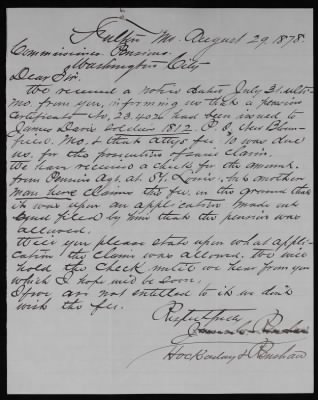 Fulton Mo. August 29, 1878.
Commissioner Pensions.
Washington City
Dear Sir.
We received a notice dated July 31. ulto
mo. from you, informing us that a pension
certificate No, 23.402 had been issued to
James Davis Soldier 1812 P. O, New Bloom-
field, Mo. & that attys fee 10 was due
us, for the prosecution of said claim.
We have received a check for the amount.
from Pension Agt. at St. Louis. but another
man here claims the fee on the ground that
it was upon an application made out
and filed by him that the pension was
allowed.
Will you please state upon what appli-
cation the claim was allowed. We will
hold the check until we hear from you
which I hope will be soon.
If we are not entitled to it we don't
wish the fee.
Respectfully
Hockaday &